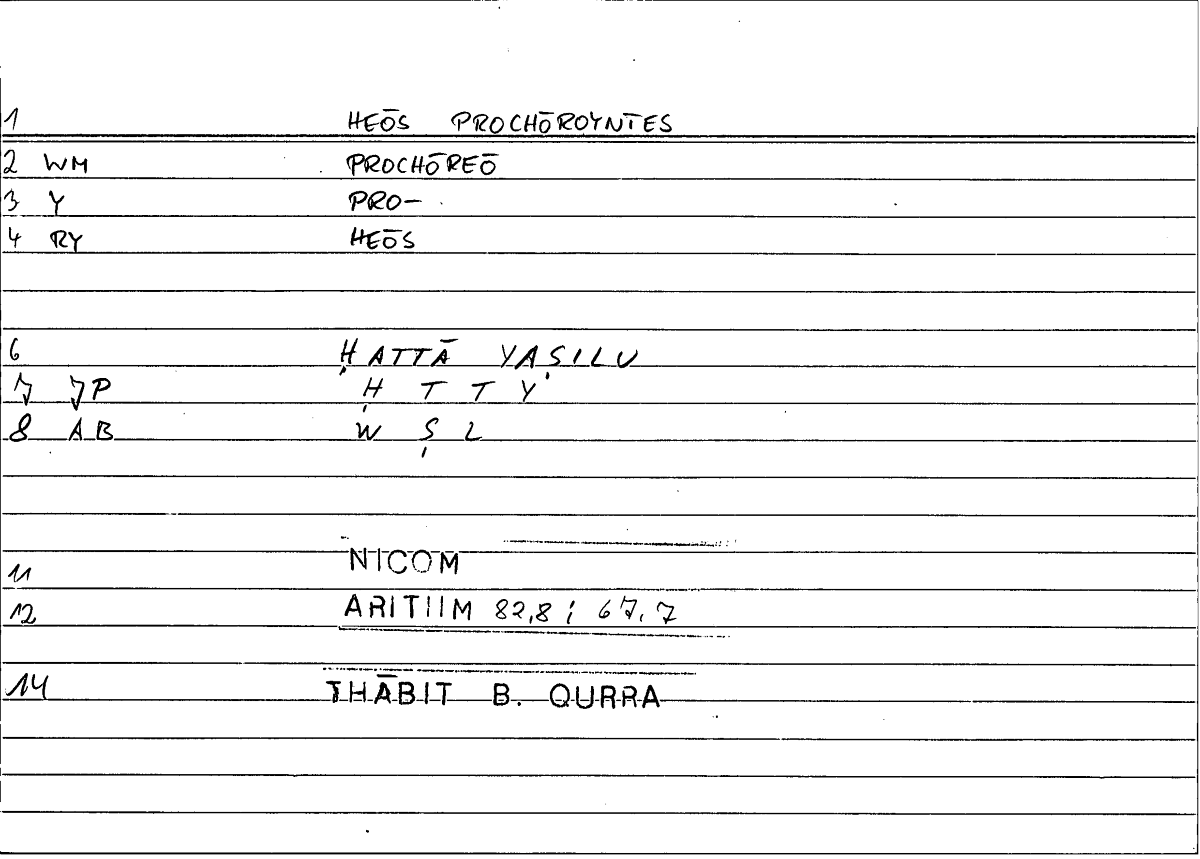 1 HEŌS PROCHŌROYNTES
2 WM PROCHŌREŌ
3 Y PRO-
4 RY HEŌS
6 ḤATTĀ YAṢILU
7 JP Ḥ T T Y
8 AB W Ṣ L
11 NICOM
12 ARITIIM 82,8 ; 67,7
14 THĀBIT B. QURRA